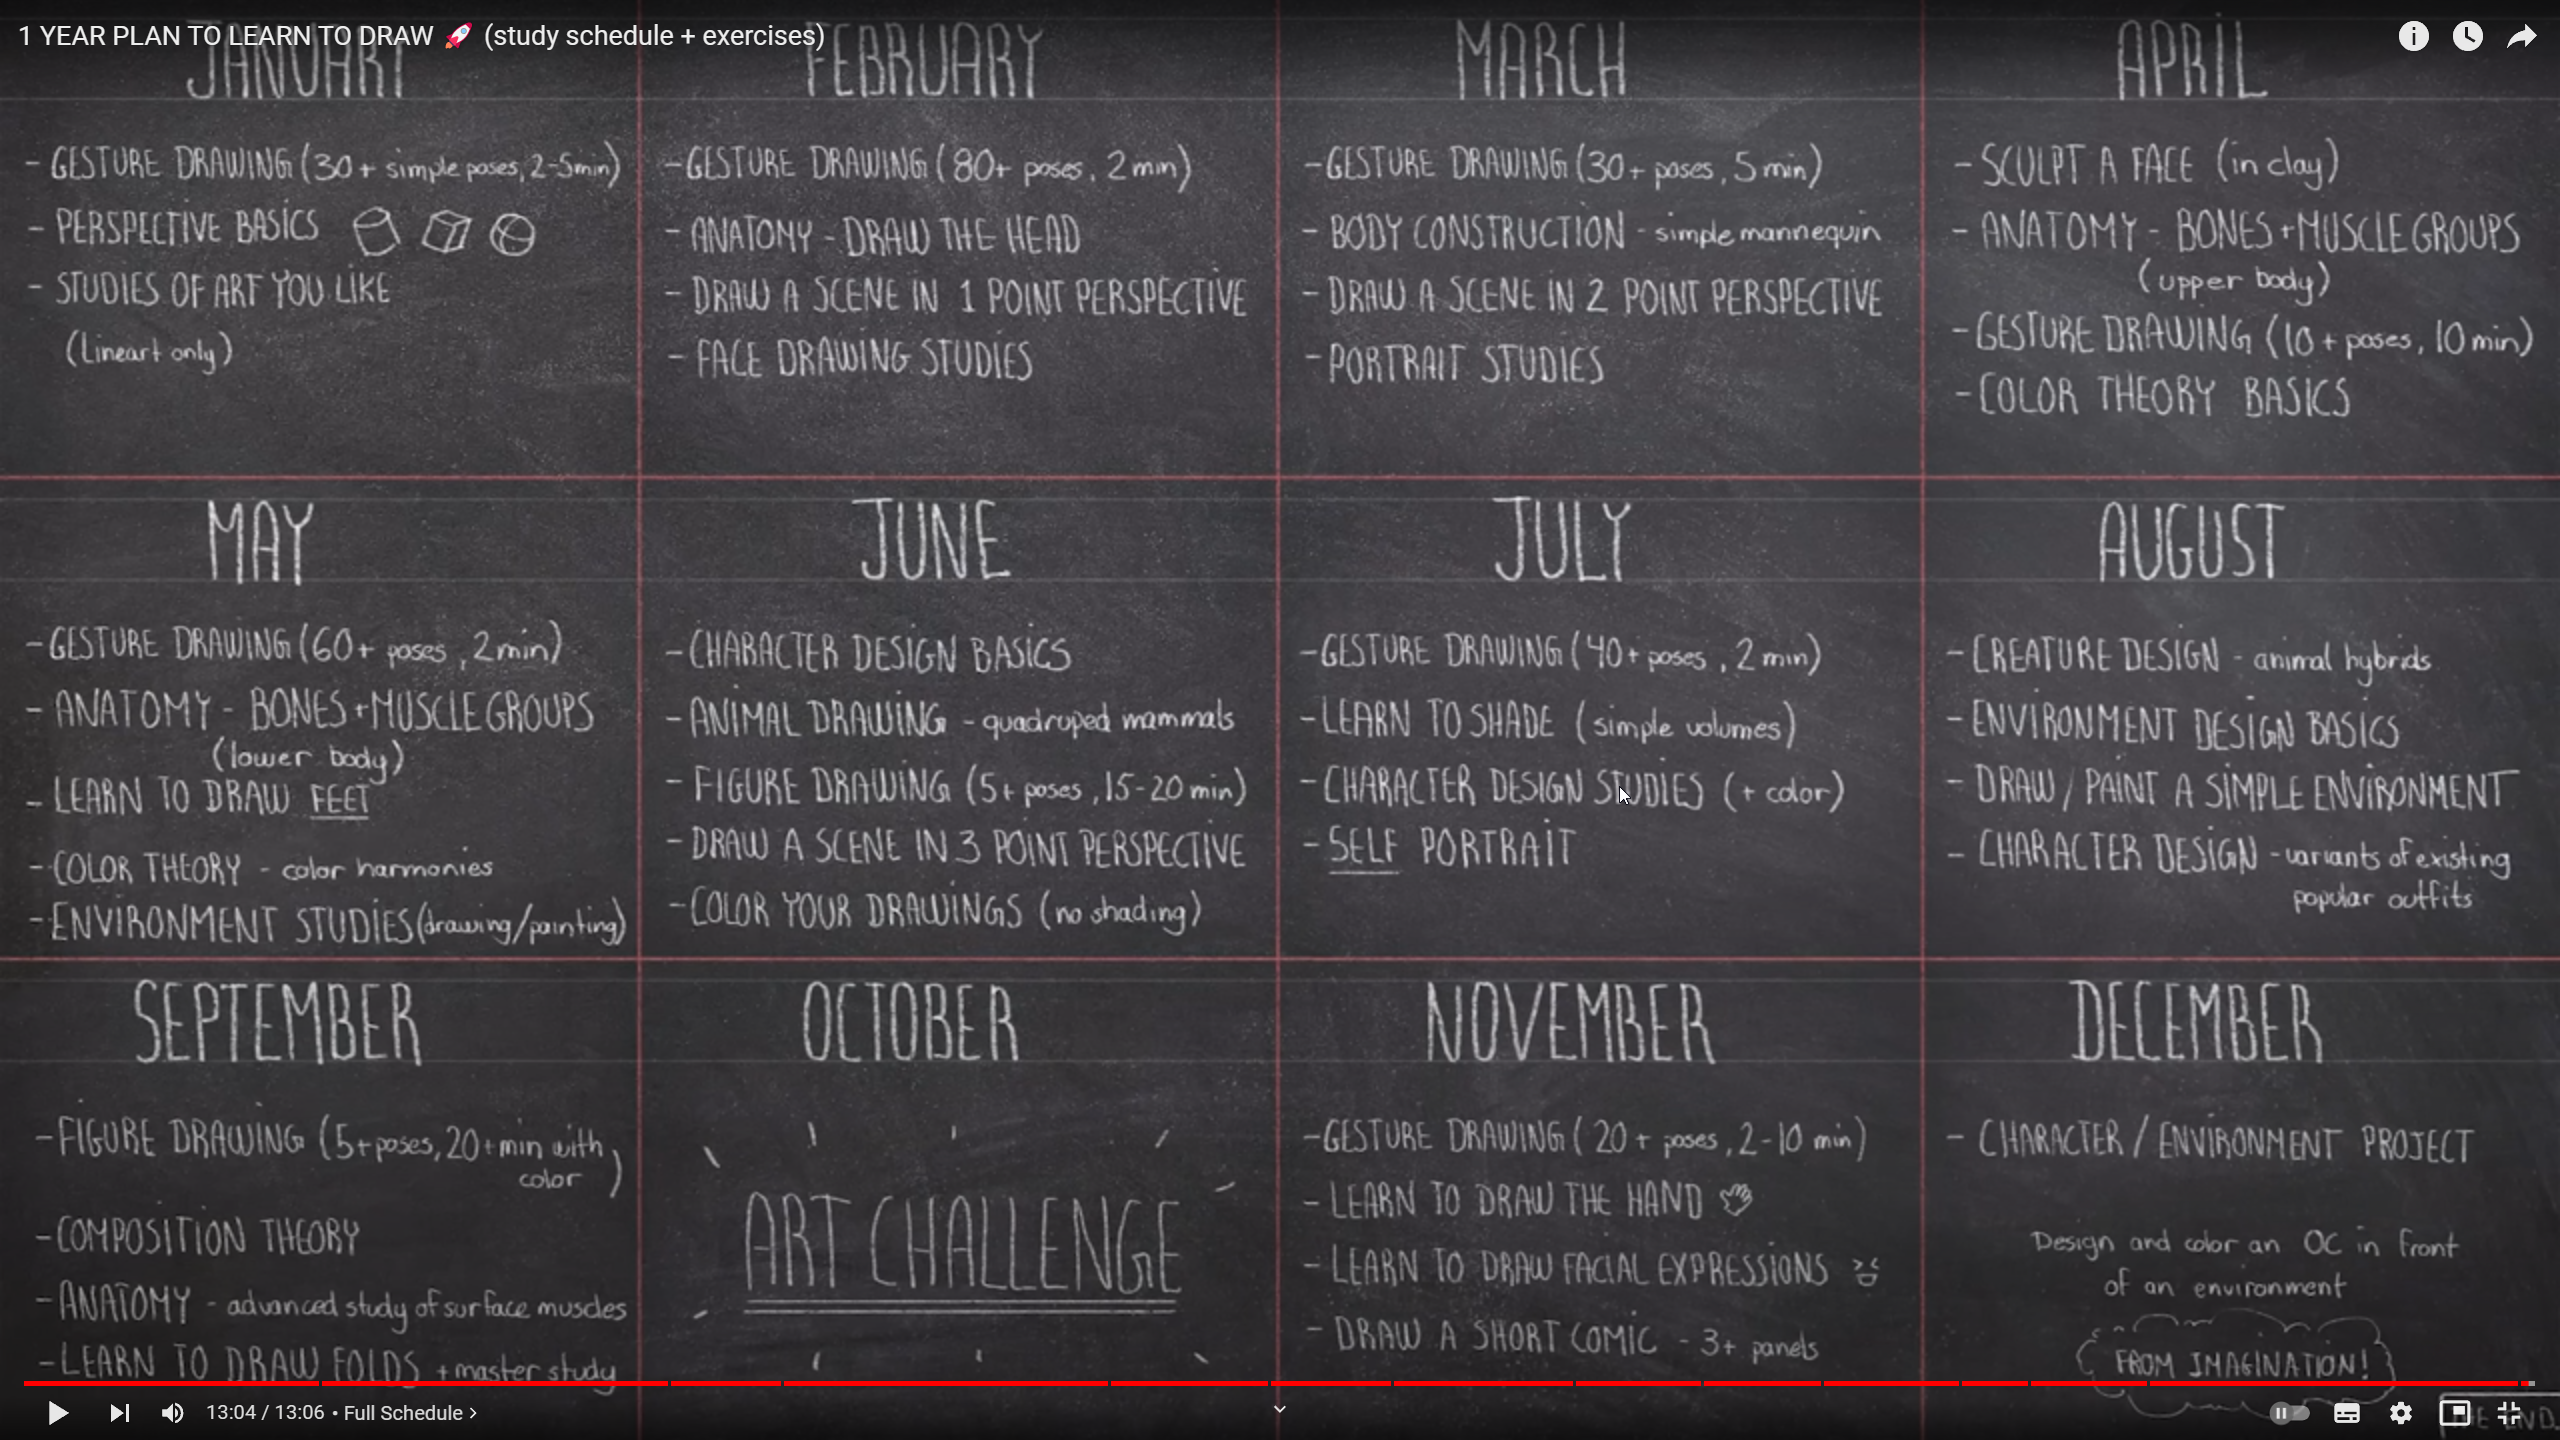 1 YEAR PLAN TO LEARN TO DRAW 🚀 (study schedule + exercises)
JANUARY
- GESTURE DRAWING (30+ simple poses, 2-5min)
- PERSPECTIVE BASICS
- STUDIES OF ART YOU LIKE
(Lineart only)
FEBRUARY
- GESTURE DRAWING (80+ poses, 2min)
- ANATOMY - DRAW THE HEAD
- DRAW A SCENE IN 1 POINT PERSPECTIVE
- FACE DRAWING STUDIES
MARCH
- GESTURE DRAWING (30+ poses, 5min)
- BODY CONSTRUCTION - simple mannequin
- DRAW A SCENE IN 2 POINT PERSPECTIVE
- PORTRAIT STUDIES
APRIL
- SCULPT A FACE (in clay)
- ANATOMY - BONES + MUSCLE GROUPS
(upper body)
- GESTURE DRAWING (10+ poses, 10min)
- COLOR THEORY BASICS
MAY
- GESTURE DRAWING (60+ poses, 2min)
- ANATOMY - BONES + MUSCLE GROUPS
(lower body)
- LEARN TO DRAW FEET
- COLOR THEORY - color harmonies
- ENVIRONMENT STUDIES (drawing/painting)
JUNE
- CHARACTER DESIGN BASICS
- ANIMAL DRAWING - quadruped mammals
- FIGURE DRAWING (5+ poses, 15-20 min)
- DRAW A SCENE IN 3 POINT PERSPECTIVE
- COLOR YOUR DRAWINGS (no shading)
JULY
- GESTURE DRAWING (40+ poses, 2 min)
- LEARN TO SHADE (simple volumes)
- CHARACTER DESIGN STUDIES (+ color)
- SELF PORTRAIT
AUGUST
- CREATURE DESIGN - animal hybrids
- ENVIRONMENT DESIGN BASICS
- DRAW/PAINT A SIMPLE ENVIRONMENT
- CHARACTER DESIGN - variants of existing
popular outfits
SEPTEMBER
- FIGURE DRAWING (5+poses, 20+min with
color)
- COMPOSITION THEORY
- ANATOMY - advanced study of surface muscles
- LEARN TO DRAW FOLDS + master study
OCTOBER
ART CHALLENGE
NOVEMBER
- GESTURE DRAWING (20+ poses, 2-10 min)
- LEARN TO DRAW THE HAND
- LEARN TO DRAW FACIAL EXPRESSIONS
- DRAW A SHORT COMIC - 3+ panels
DECEMBER
- CHARACTER / ENVIRONMENT PROJECT
Design and color an OC in front
of an environment
FROM IMAGINATION!
13:04 / 13:06 • Full Schedule >